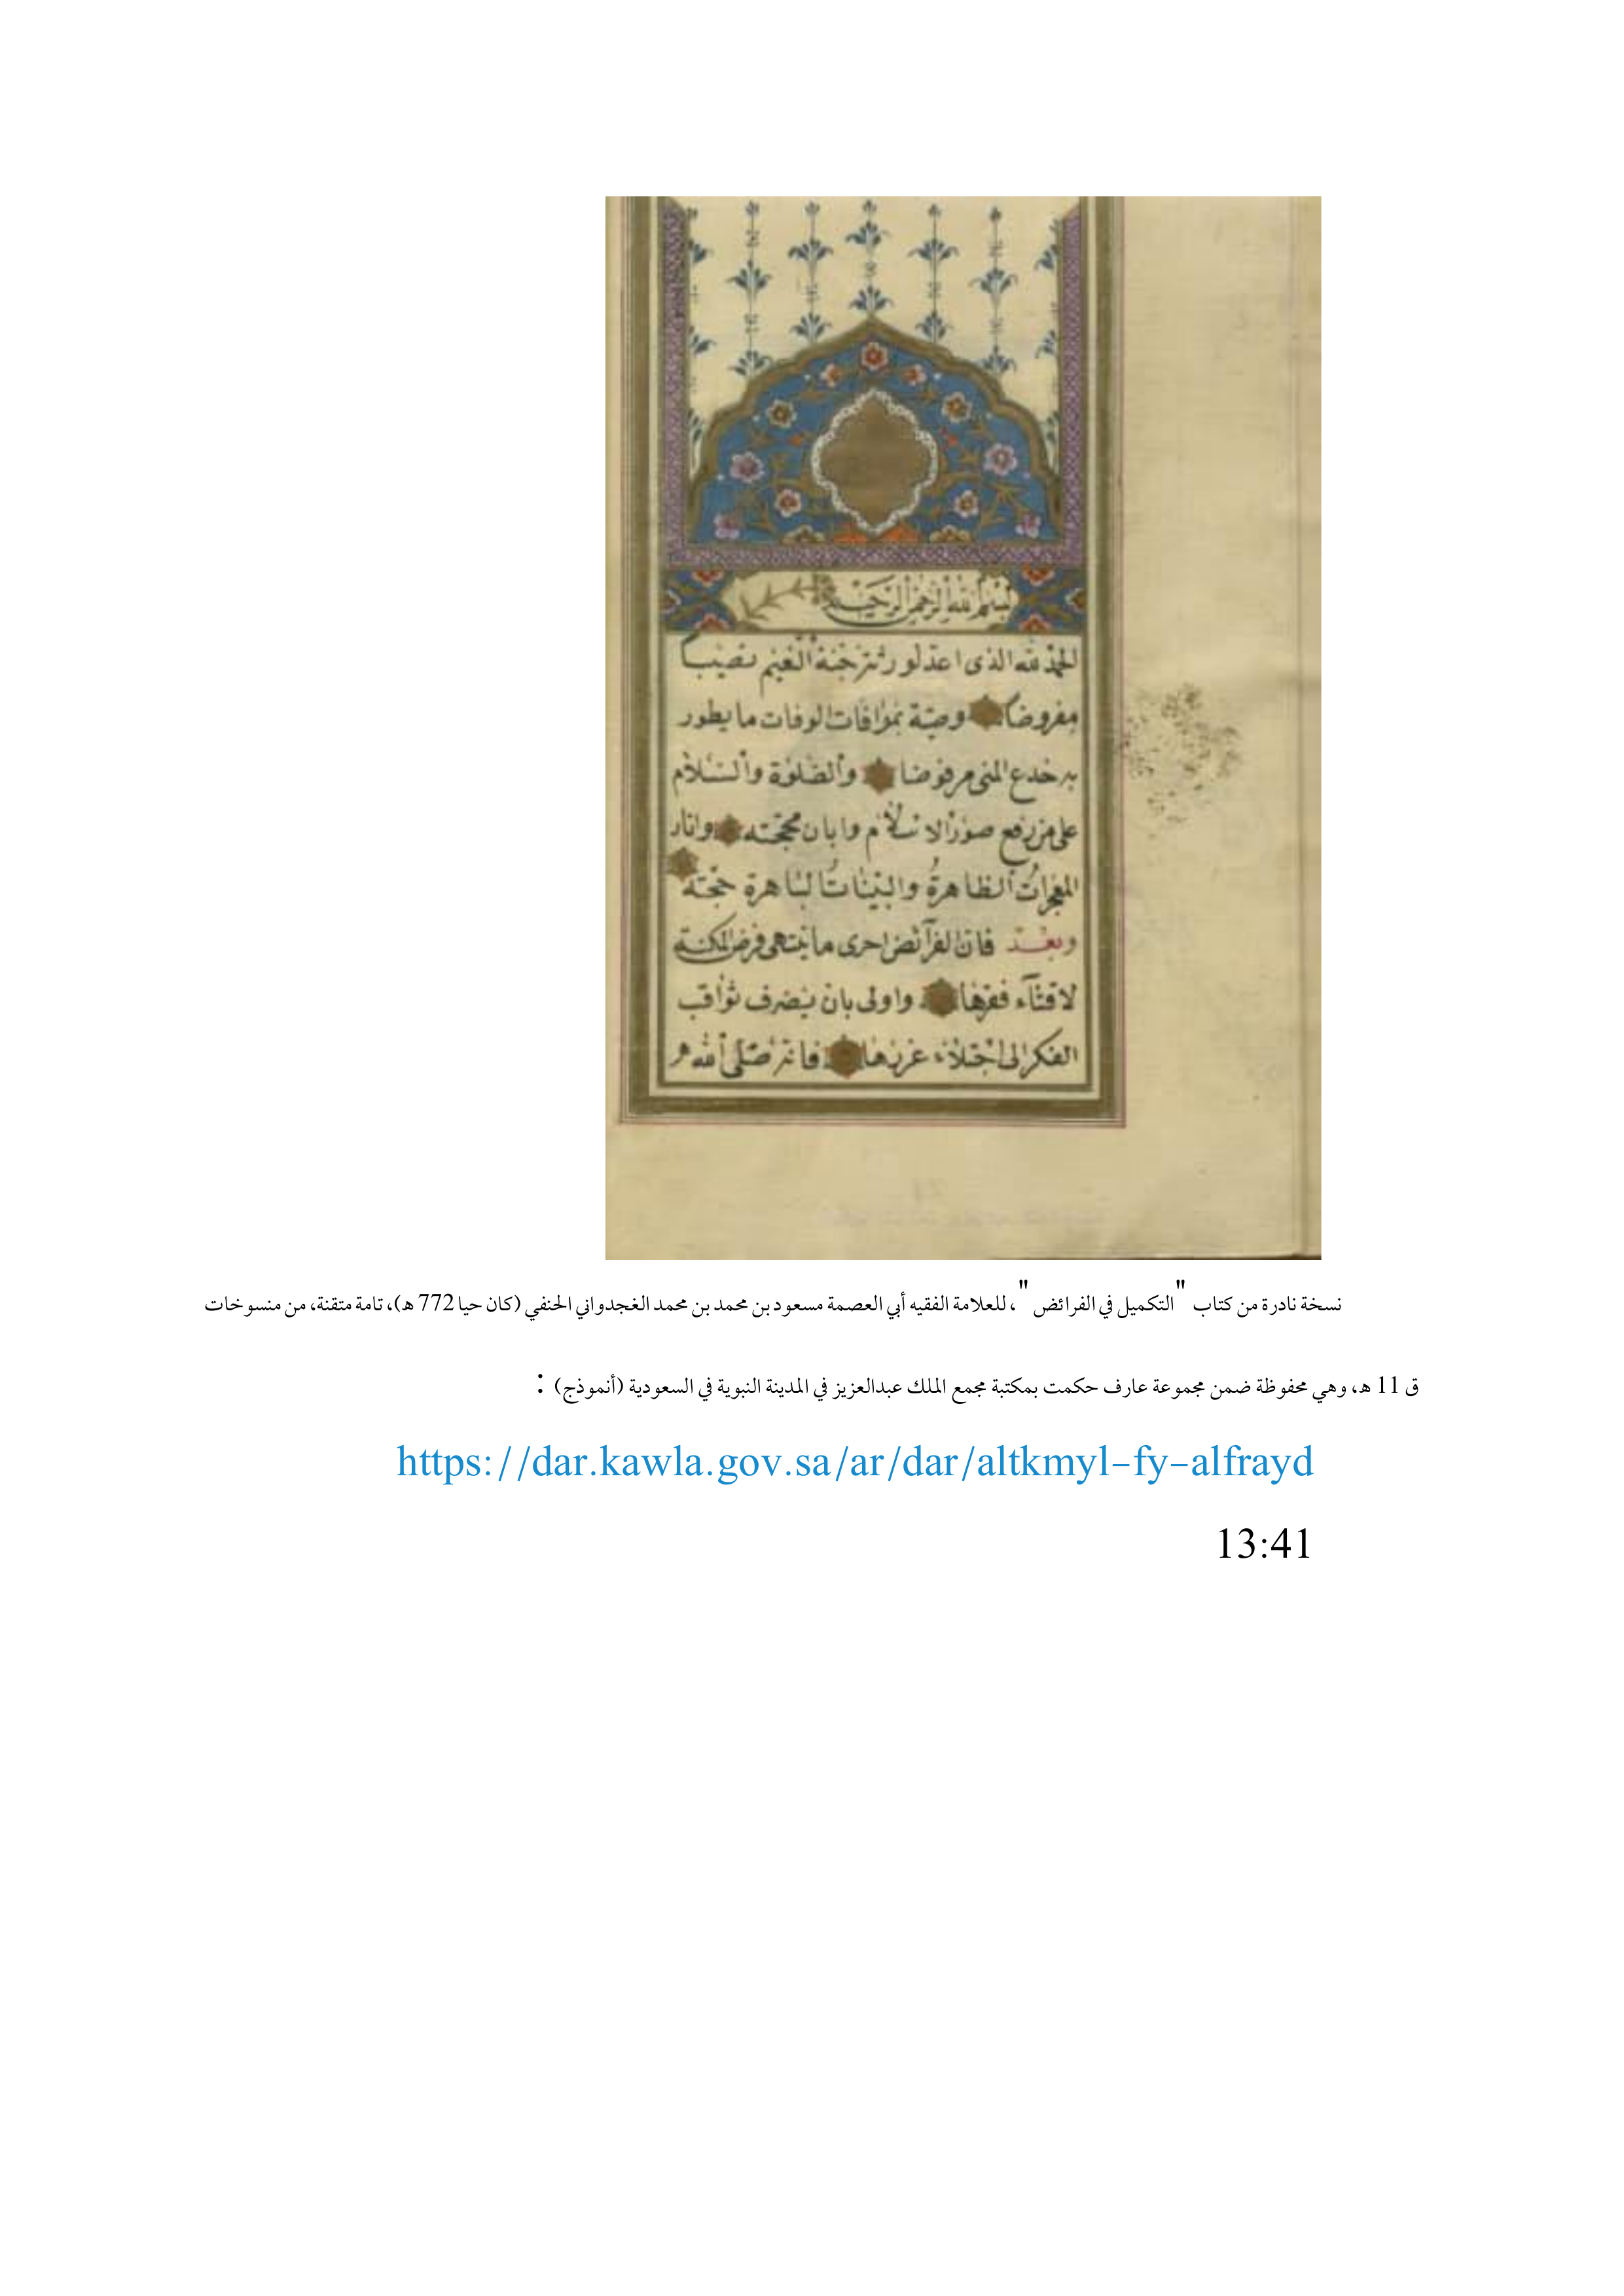 بسم الله الرحمن الرحيم
الحمد لله الذى اعد لورثة جنة النعيم نصيبا
مفروضا وصية بموافات الوفات ما يطور
به خدع المنى مرفوضا والصلوة والسلام
على من رفع صور الاسلام وابان محجته وانار
المعجزات الظاهرة والبينات الباهرة حجته
وبعد فان الفرائض احرى ما ينتهى فرض المكنة
لاقتناء فقرها واولى بان يصرف ثواقب
الفكر الى اجتلاء غررها فانه صلى الله
نسخة نادرة من كتاب "التكميل في الفرائض"، للعلامة الفقيه أبي العصمة مسعود بن محمد بن محمد الغجدواني الحنفي (كان حيا 772 هـ)، تامة متقنة، من منسوخات
ق 11 هـ، وهي محفوظة ضمن مجموعة عارف حكمت بمكتبة مجمع الملك عبدالعزيز في المدينة النبوية في السعودية (أنموذج) :
https://dar.kawla.gov.sa/ar/dar/altkmyl-fy-alfrayd
13:41